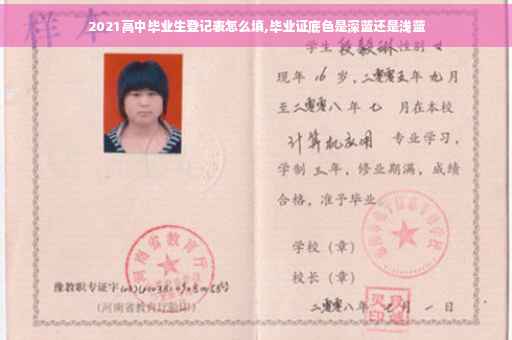 2021高中毕业生登记表怎么填,毕业证底色是深蓝还是浅蓝
样本
学生 段毅琳 性别 女
现年 16 岁,二零零五年 九月
至二零零八年 七 月在本校
计算机应用 专业学习,
学制 三年,修业期满,成绩
合格,准予毕业
学校(章)
校长(章)
二零零八年 七 月 一 日
河南省教育厅
豫教职专证字
(河南省教育厅验印)